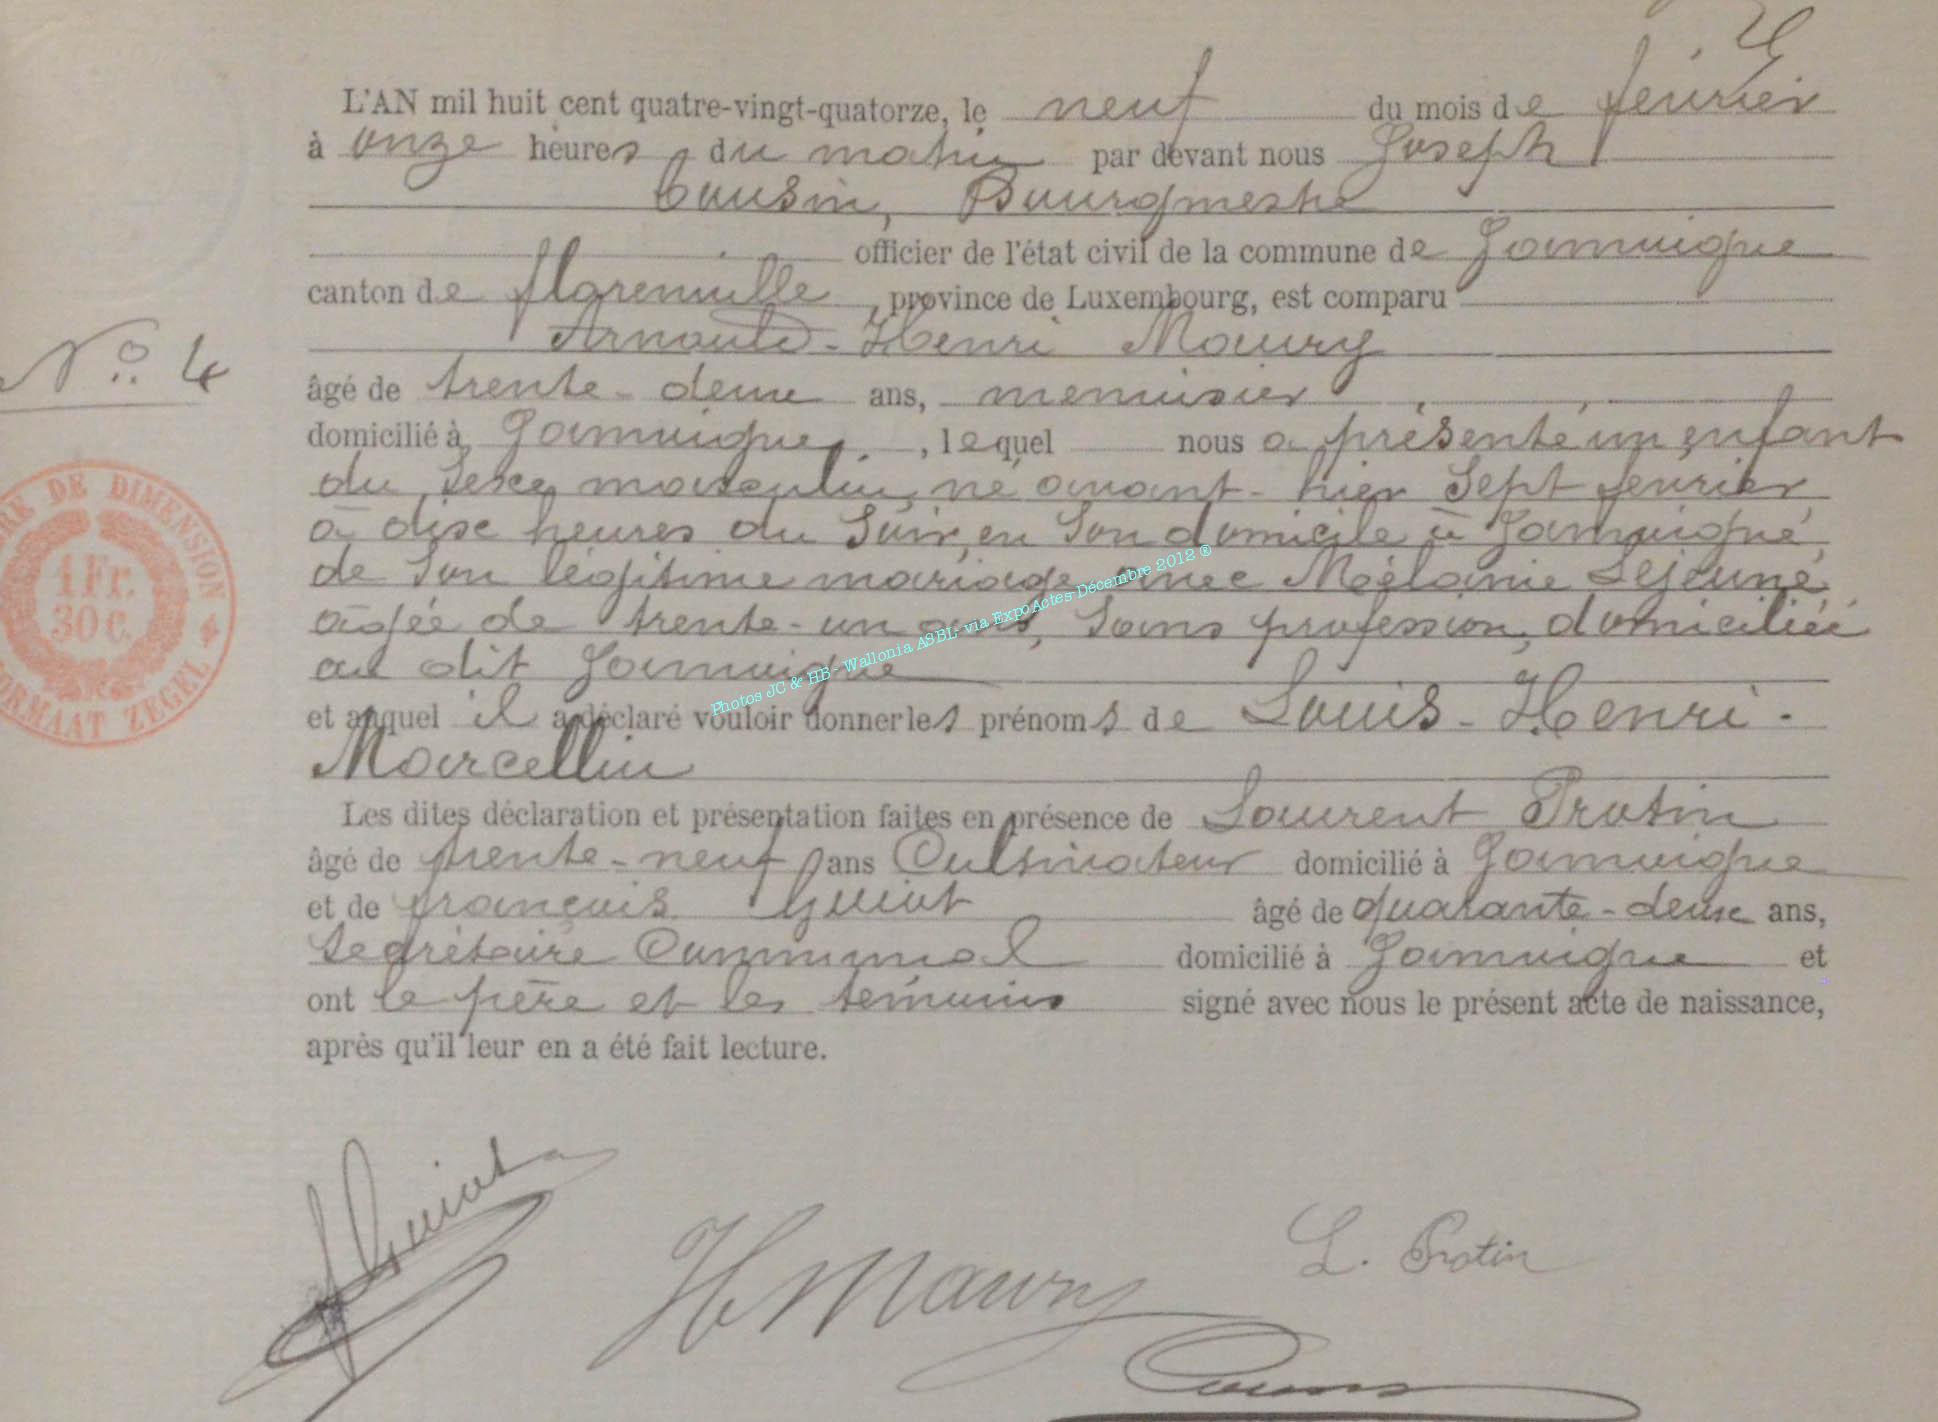 L'AN mil huit cent quatre-vingt-quatorze, le neuf du mois de février
à onze heures du matin par devant nous Joseph
Cousin, Bourgmestre
officier de l'état civil de la commune de Jamoigne
canton de florenville, province de Luxembourg, est comparu
Arnould-Henri Maury
N° 4
âgé de trente-deux ans, menuisier
domicilié à Jamoigne, lequel nous a présenté un enfant
du sexe masculin, né avant-hier Sept février
à dix heures du Soir, en Son domicile à Jamoigne,
de Son légitime mariage avec Mélanie Lejeune
âgée de trente-un ans, Sans profession, domiciliée
au dit Jamoigne
et auquel il a déclaré vouloir donner les prénoms de Louis-Henri-
Marcellin
Les dites déclaration et présentation faites en présence de Laurent Protin
âgé de trente-neuf ans Cultivateur domicilié à Jamoigne
et de françois Guiot âgé de quarante-deux ans,
Secrétaire Communal domicilié à Jamoigne et
ont le père et les témoins signé avec nous le présent acte de naissance,
après qu'il leur en a été fait lecture.
DE DIMENSION
1 Fr.
30 C.
FORMAAT ZEGEL
Photos JC & HB - Wallonia ASBL- via ExpoActes-Décembre 2012 ®
Guiot
H Maury
L. Protin